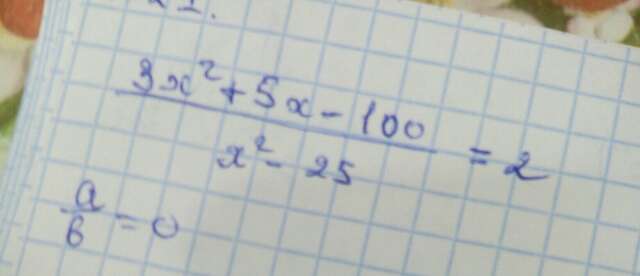 21.
3x² + 5x - 100 / x² - 25 = 2
a / в = 0